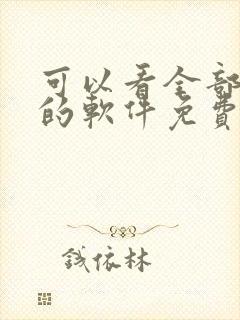 可以看全部
的軟件免費
錢依林